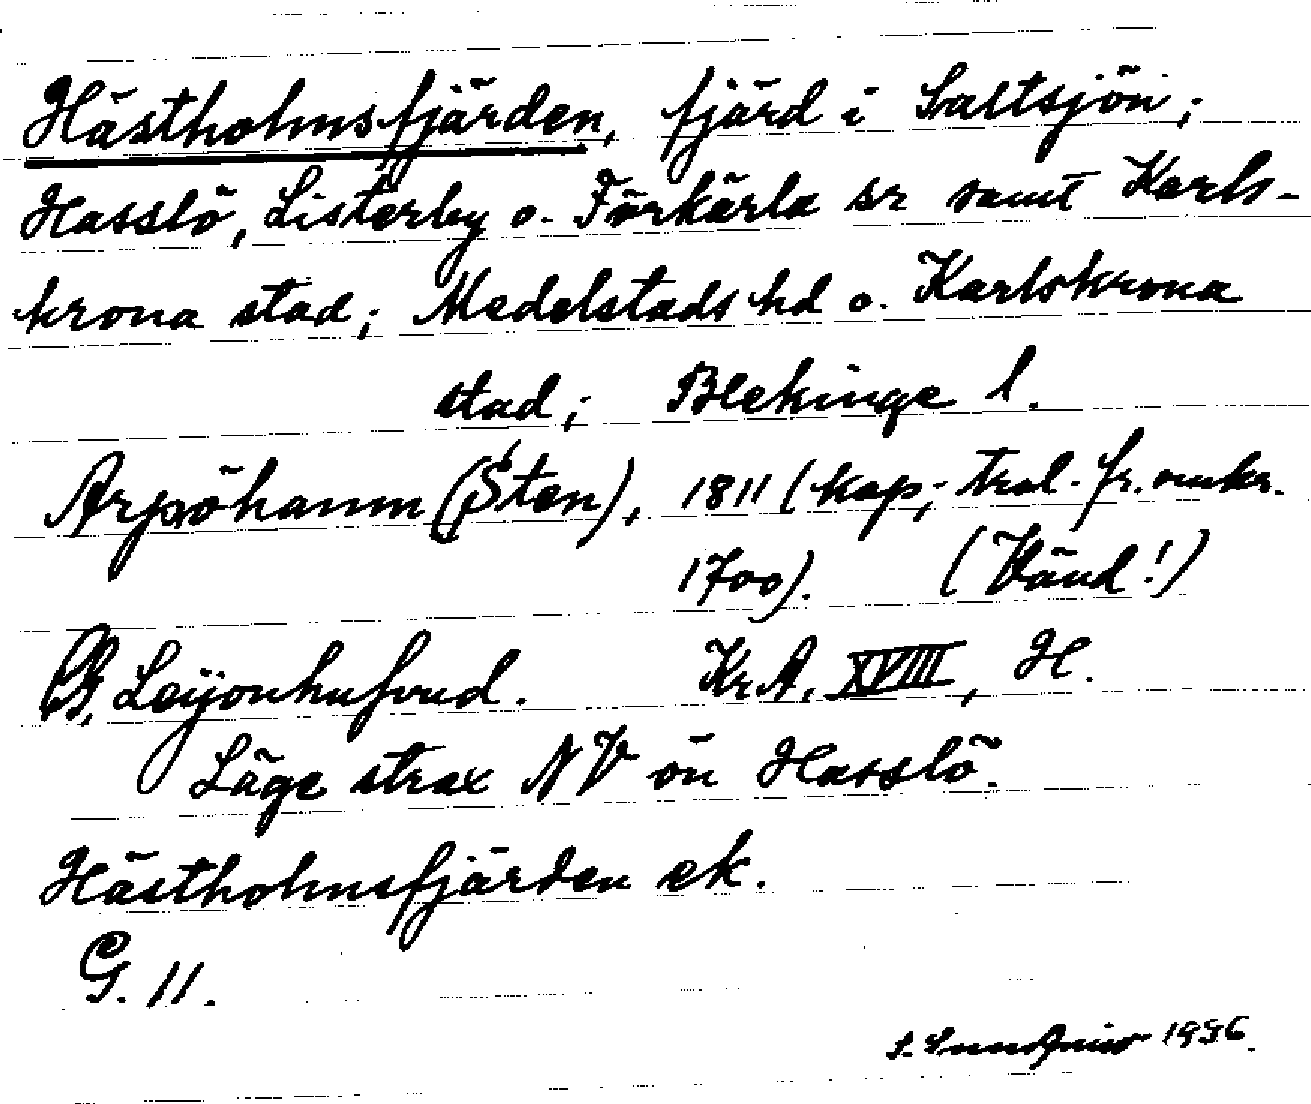 Hästholmsfjärden, fjärd i Saltsjön;
Hasslö, Listerby o. Förkärla sr samt Karls-
krona stad; Medelstads hd o. Karlskrona
stad; Blekinge l.
Arpöhamn (Sten), 1811 (kap; tral. fr. omkr.
1700). (Vänd!)
G. Leijonhufvud. Kr.A. XVIII, H.
Läge strax NV ön Hasslö.
Hästholmsfjärden ek.
G. 11.
1956.